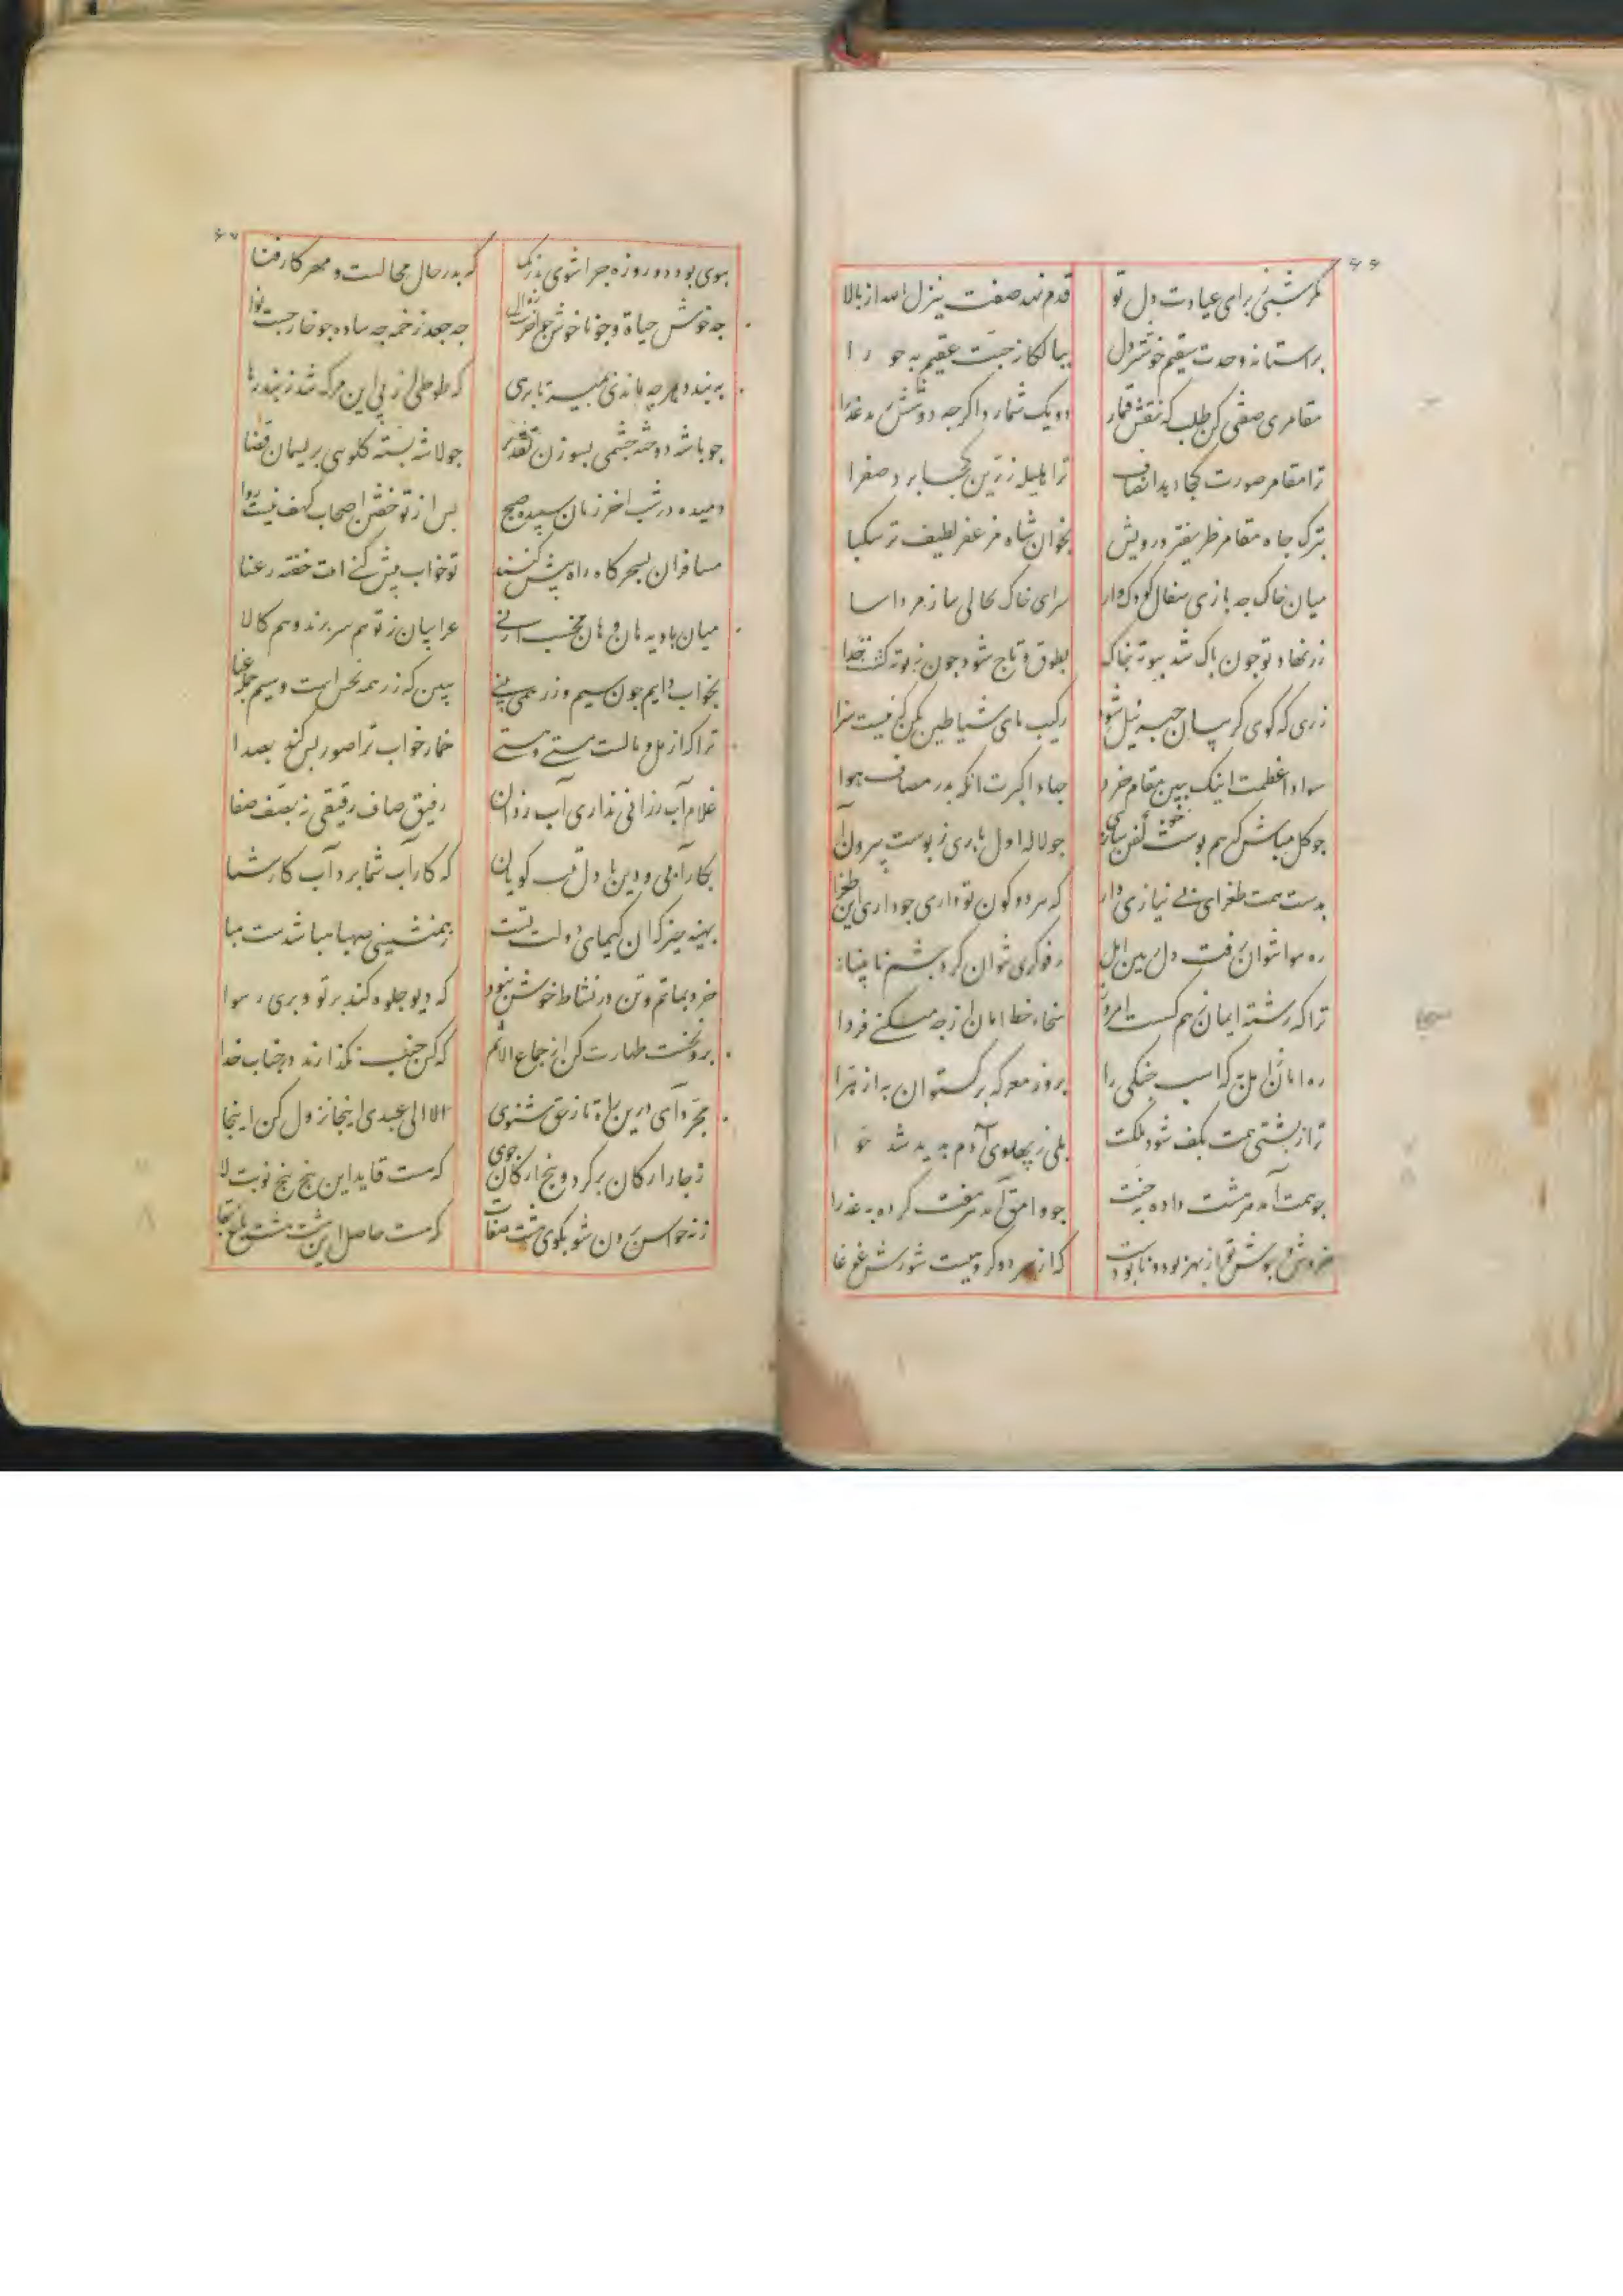 ۶۶
مگر شبی برای عیادت دل تو قدم نهد صفت ینزل الله از بالا
بر آستانه وحدت سقیم خوشتر دل ببالکا ز جنت عقیم به حورا
مقامری صفتی کن طلب که نقش قمار دو یک شمارد اکرجه دو شش زند عذرا
ترا مقامر صورت کجا دهد انصاف ترا هلیله زرین کجا برد صفرا
بترک جاه مقامر ظریفتر درویش بخوان شاه مزعفر لطیف تر سکبا
میان خاک جه بازی سفال کودک وار سرای خاک بخاکی ساز مردآسا
زر نهاد تو جون باک شد ببوته خاک بطوق و تاج شود جون ز بوته کشت جدا
زری که کوی کریبان جبرئیل شود رکیب بای شیاطین مکن که نیست سزا
سواد اعظمت اینک ببین مقام خرد جهاد اکبرت انک بدر مصاف هوا
جو کل مباش که هم بوست کفن سازی جو لاله اول باری ز بوست بیرون آ
بدست همت طغرای بی نیازی دار که هر دو کون تو داری جو داری این طغرا
ره سوا نتوان رفت دل ببین رفوکری نتوان کرد جشم نابینا
ترا که رشته ایمان ز هم کسست امروز سحاء خط امان از جه میکنی فردا
ره امان که اسب جنکی را بروز معرکه برکستوان به از هرا
ترا ز بشتی همت بکف شود ملکت بلی ز بهلوی آدم بدید شد حوا
جو همت آمد هر هشت داده به جنت جو وامق آمد هر هفت کرده به عذرا
خروش و جوش تو از بهر بود و نابودست که از سر دو کروهیست شورش غوغا
۶۷
ببوی بود دو روزه جرا شوی بزرک که بدر حال محالست و مهر کار فنا
جه خوش حیاة و جه ناخوش جو آخرست زوال جه جعد زخمه جه ساده جو خارجست نوا
ببند دم جه باندی بمیر تا برهی که طوطی از بی این مرک شد ز بند رها
جو باشه دوخته جشمی بسوزن تقدیر جو لاشه بسته کلویی بریسمان قضا
دمیده در شب اخر زمان سبیده صبح بس از تو خفتن اصحاب کهف نیست روا
مسافران بسحرکاه راه بیش کنند تو خواب بیش کنی اینت خفته رعنا
میان بادیه هان و هان مخسب ارنی عرابیان ز تو هم سر برند و هم کالا
بخواب دایم جون سیم و زر همی بینی ببین که زر همه نحس است و سیم جمله عنا
ترا کز مل و مالست مستی و هستی خمار خواب ترا صور بس کند بصدا
غلام آب رزانی نداری آب روان رفیق صاف رقیقی نه بصف صفا
بکار آبی و دین با دلت کویان که کار آب شما برد آب کار شما
بهینه جیز کان کیمیای دولت تست بهمنشینی صهبا هبا شدست هبا
خرد بماتم و تن در نشاط خوش نبود که دیو جلوه کند بر تو و بری رسوا
برو نخست طهارت کن از جماع الاثم که کس جنب نکذارند در جناب خدا
مجرد آی درین راه تا ز حق شنوی الا الی عبدی اینجا نزول کن اینجا
ز جار ارکان برکرد و بنج ارکان جوی که هست قاید این بنج بنج نوبت لا
ز نه حواس برون شو بکوی هشت صفات که هست حاصل این هشت هشت باغ بقا